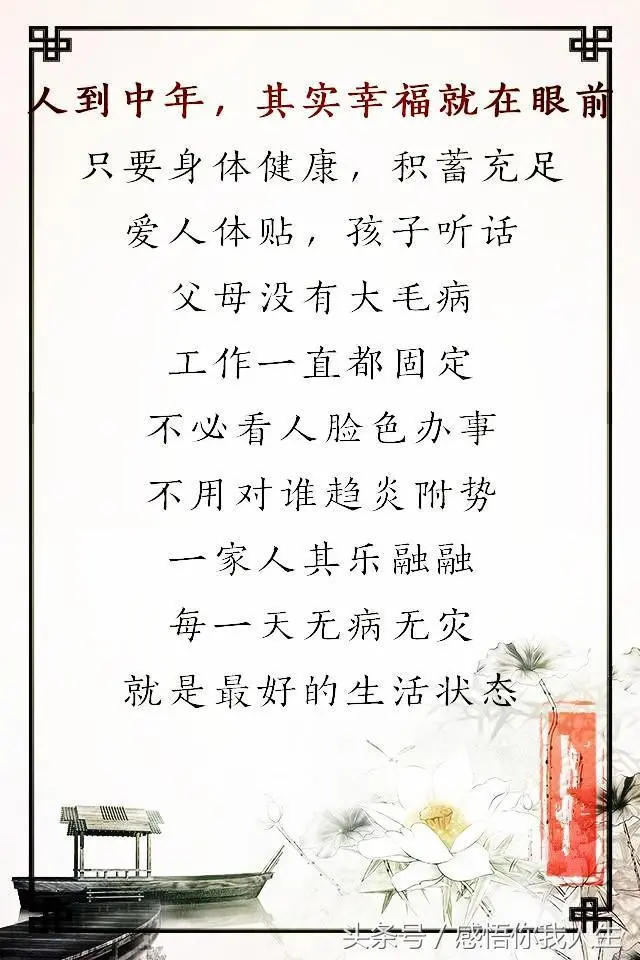 人到中年，其实幸福就在眼前
只要身体健康，积蓄充足
爱人体贴，孩子听话
父母没有大毛病
工作一直都固定
不必看人脸色办事
不用对谁趋炎附势
一家人其乐融融
每一天无病无灾
就是最好的生活状态
头条号/感悟你我人生